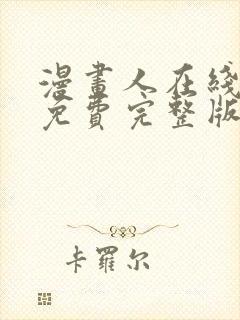 漫畫人在綫
免費完整版
卡羅尔